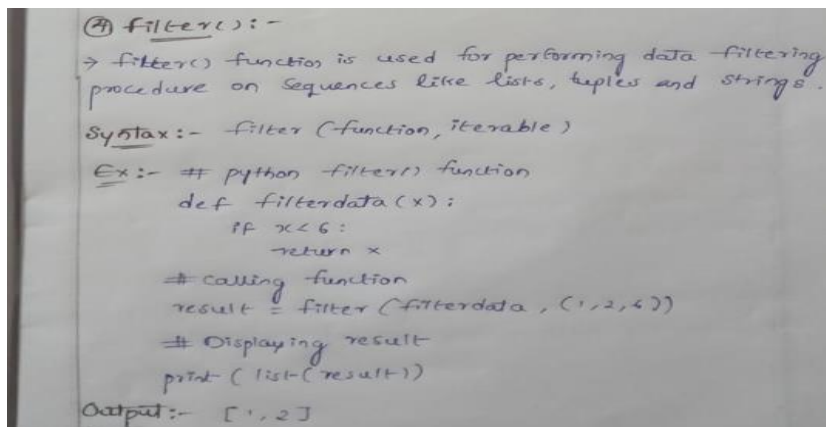 24 filter():-
→ filter() function is used for performing data filtering
procedure on sequences like lists, tuples and strings.
Syntax:- filter (function, iterable)
Ex:- # python filter() function
def filterdata(x):
if x<6:
return x
# calling function
result = filter (filterdata, (1,2,6))
# Displaying result
print (list(result))
Output:- [1,2]